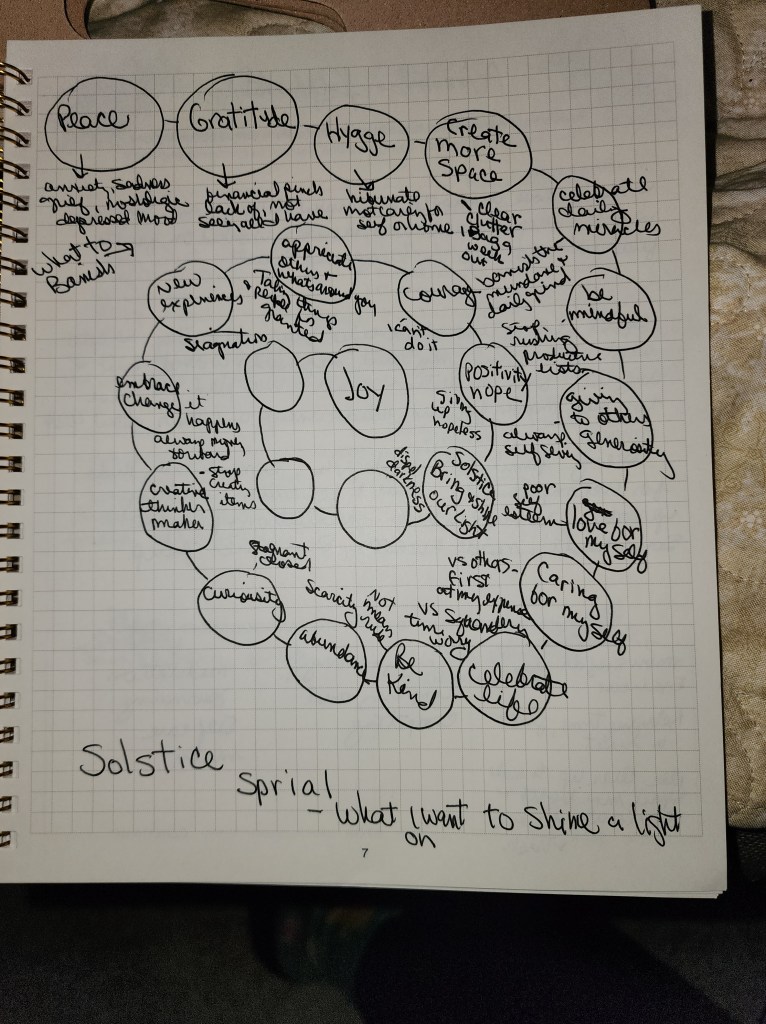 Peace
Gratitude
Hygge
Create
more
Space
celebrate
daily
miracles
anxiety, sadness
grief, nostolige
depressed mood
financial pinch
lack of, not
seeing all I have
hibunate
not caren for
self or home
clear
clutter
bagg
week
out
What to
Banish
banish the
mundane &
daily grind
be
mindful
stop
rushing
productive
lists
giving
to others
generosity
always
self serving
love for
my self
poor
self
esteem
Caring
for my self
vs othas
first
at my expense
celebrate
life
vs squandery
time
worry
Be
Kind
Not
mean
rude
abundance
Scarcity
curiousity
stagnant
closed
creative
thinker
maker
stop
creating
items
embrace
change
it
happens
always moving
forward
new
experiences
stagnation
appreciate
others &
what's around you
Taking things
people for
granted
courage
I can't
do it
positivity
hope
giving
up
hopeless
Solstice
Bring & shine
our light
dispel
darkness
Joy
Solstice
Sprial
- What I want to Shine a light
on
7